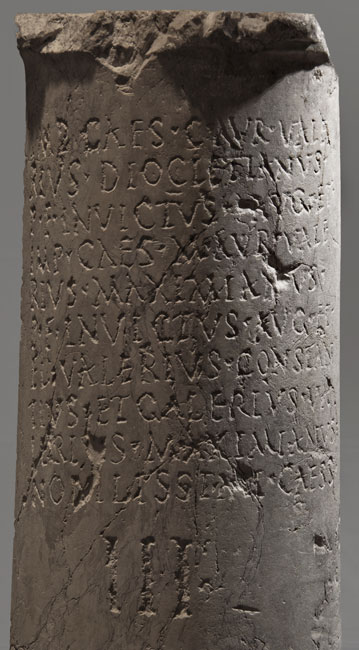 IMP·CAES·C·AVR·VALE
RIVS·DIOCLETIANVS·P
F·INVICTVS·AVG·ET
IMP·CAES·M·AVR·VALE
RIVS·MAXIMIANVS·P
F·INVICTVS·AVG·ET
FL·VALERIVS·CONSTAN
TIVS·ET·GALERIVS·VA
LERIVS·MAXIMIANVS
NOBILISSIMI·CAESS
III